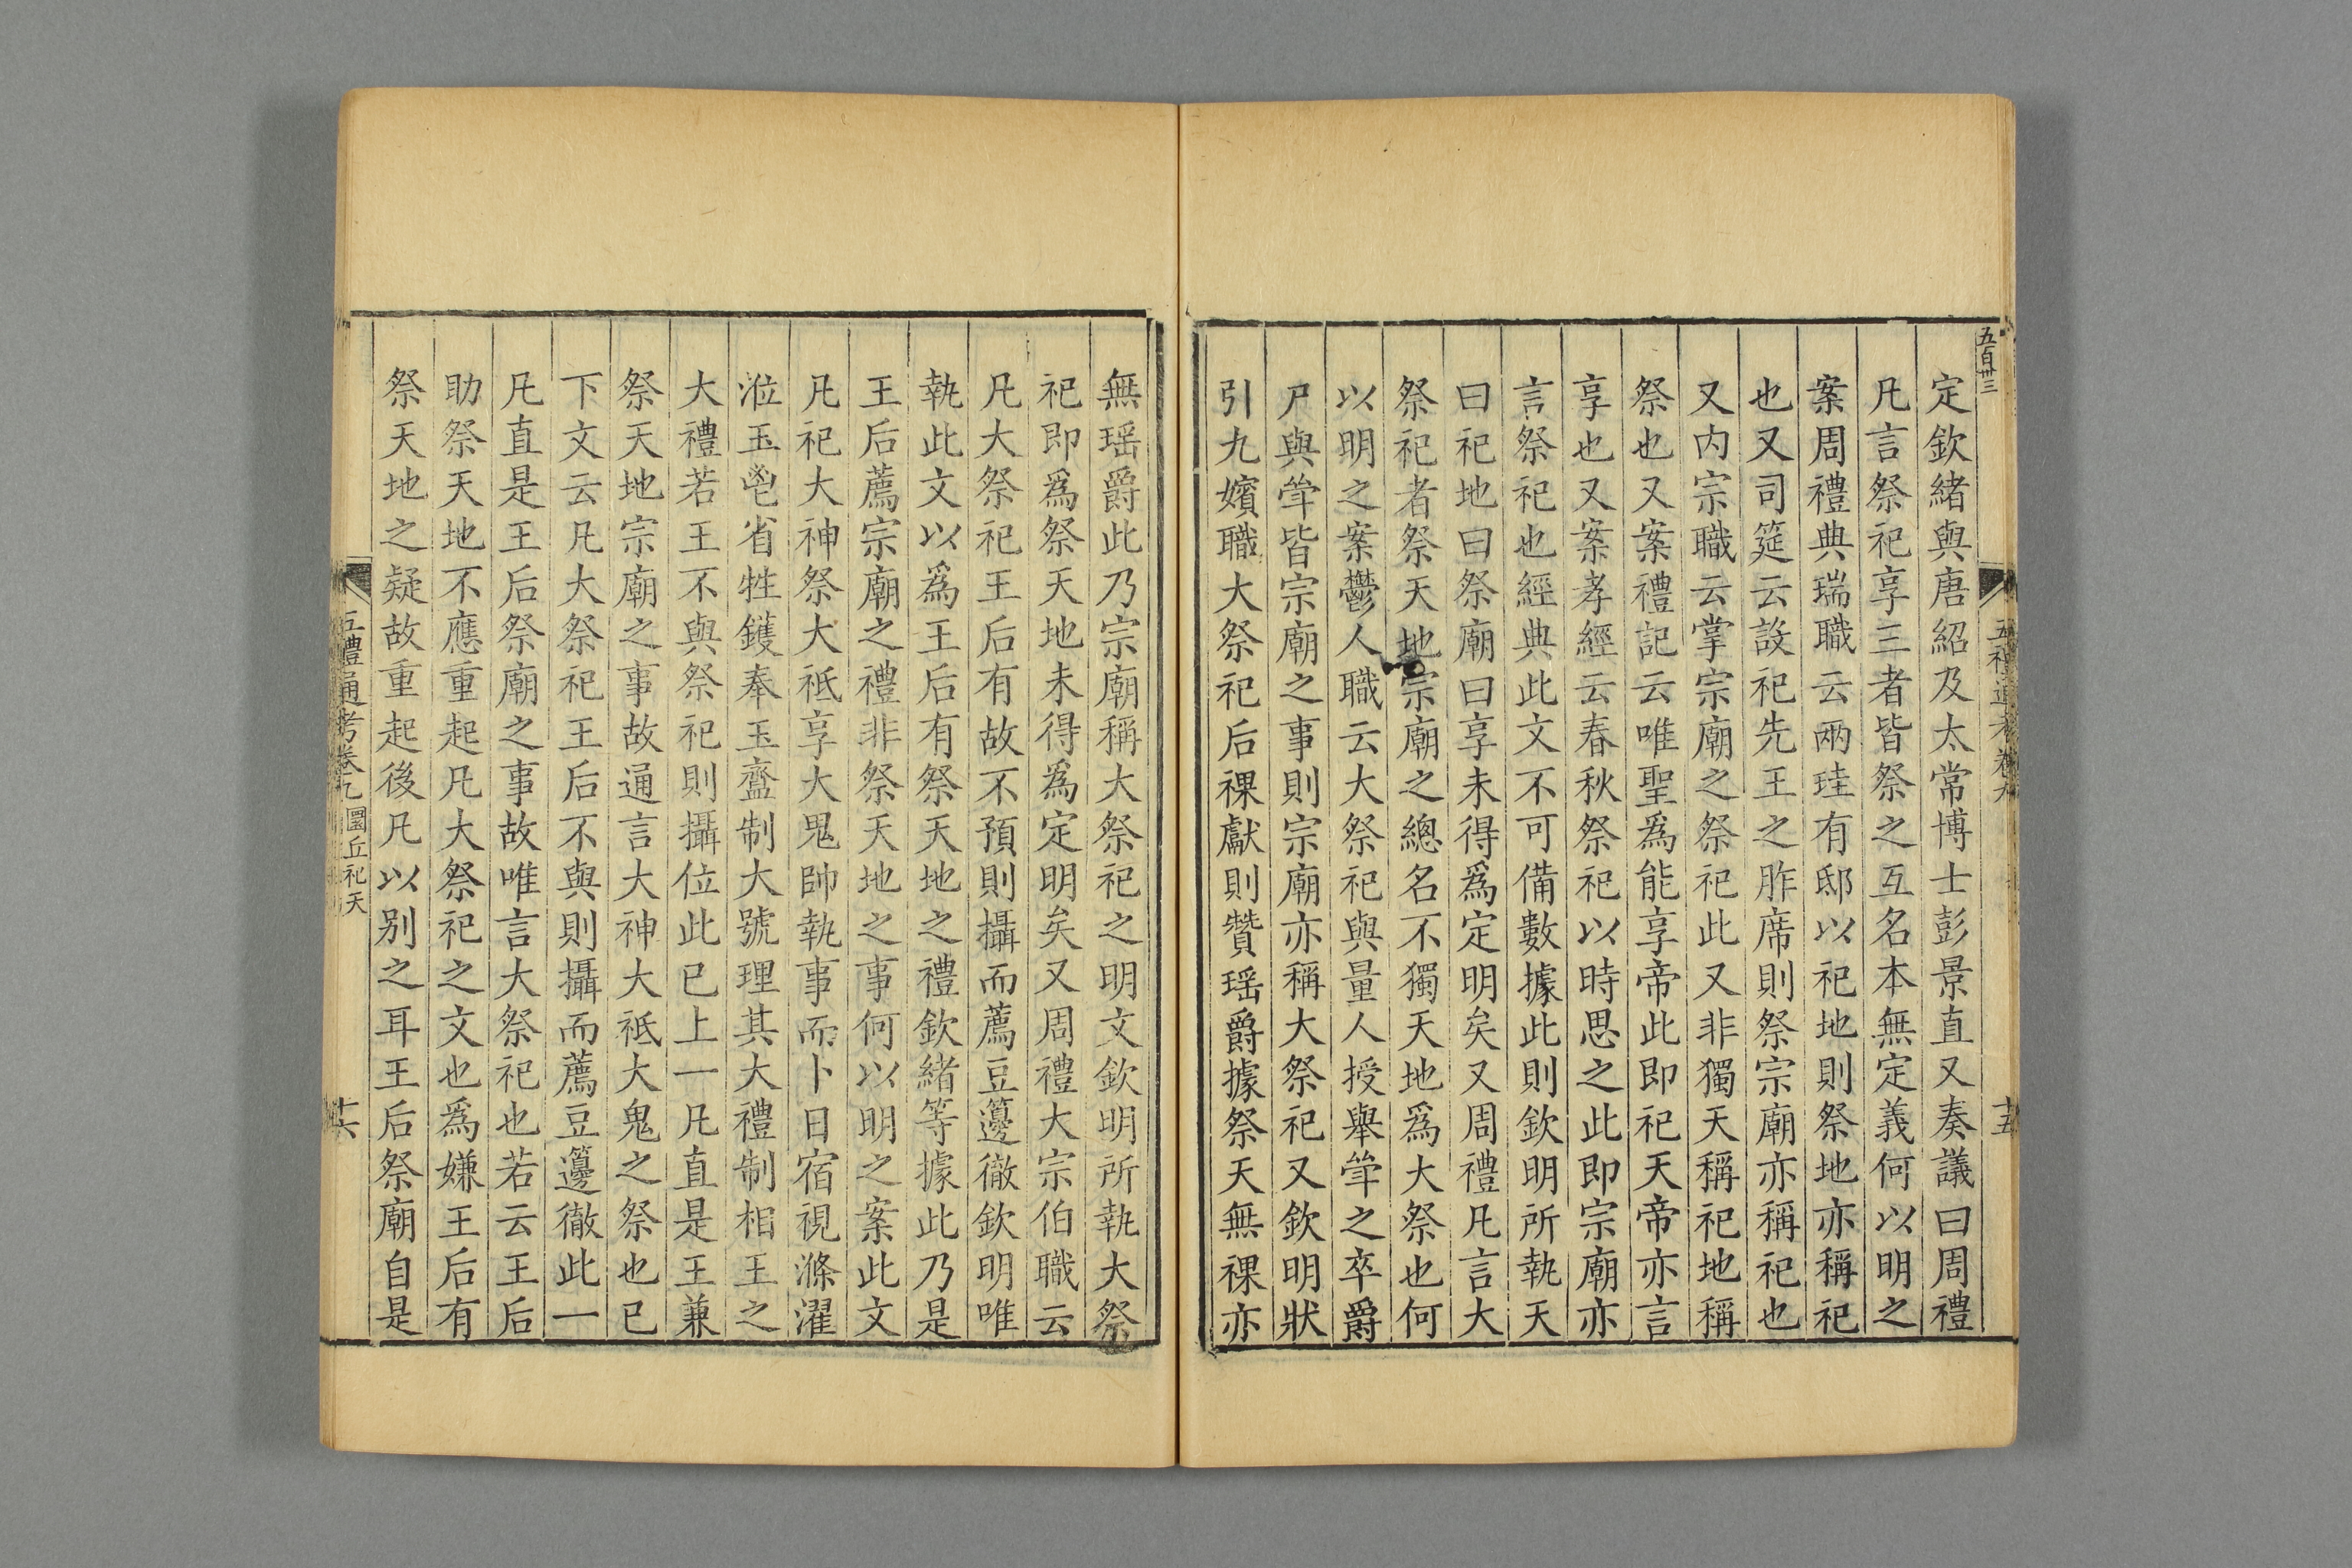 五百卅三
五禮通考卷九
十五
定欽緒與唐紹及太常博士彭景直又奏議曰周禮
凡言祭祀享三者皆祭之互名本無定義何以明之
案周禮典瑞職云兩珪有邸以祀地則祭地亦稱祀
也又司筵云設祀先王之胙席則祭宗廟亦稱祀也
又内宗職云掌宗廟之祭祀此又非獨天稱祀地稱
祭也又案禮記云唯聖爲能享帝此即祀天帝亦言
享也又案孝經云春秋祭祀以時思之此即宗廟亦
言祭祀也經典此文不可備數據此則欽明所執天
曰祀地曰祭廟曰享未得爲定明矣又周禮凡言大
祭祀者祭天地宗廟之總名不獨天地爲大祭也何
以明之案鬱人職云大祭祀與量人授舉斝之卒爵
尸與斝皆宗廟之事則宗廟亦稱大祭祀又欽明狀
引九嬪職大祭祀后祼獻則贊瑶爵據祭天無祼亦
無瑶爵此乃宗廟稱大祭祀之明文欽明所執大祭
祀即爲祭天地未得爲定明矣又周禮大宗伯職云
凡大祭祀王后有故不預則攝而薦豆籩徹欽明唯
執此文以爲王后有祭天地之禮欽緒等據此乃是
王后薦宗廟之禮非祭天地之事何以明之案此文
凡祀大神祭大祇享大鬼帥執事而卜日宿視滌濯
涖玉鬯省牲鑊奉玉齍制大號理其大禮制相王之
大禮若王不與祭祀則攝位此已上一凡直是王兼
祭天地宗廟之事故通言大神大祇大鬼之祭也已
下文云凡大祭祀王后不與則攝而薦豆籩徹此一
凡直是王后祭廟之事故唯言大祭祀也若云王后
助祭天地不應重起凡大祭祀之文也爲嫌王后有
祭天地之疑故重起後凡以别之耳王后祭廟自是
五禮通考卷九 圜丘祀天
十六